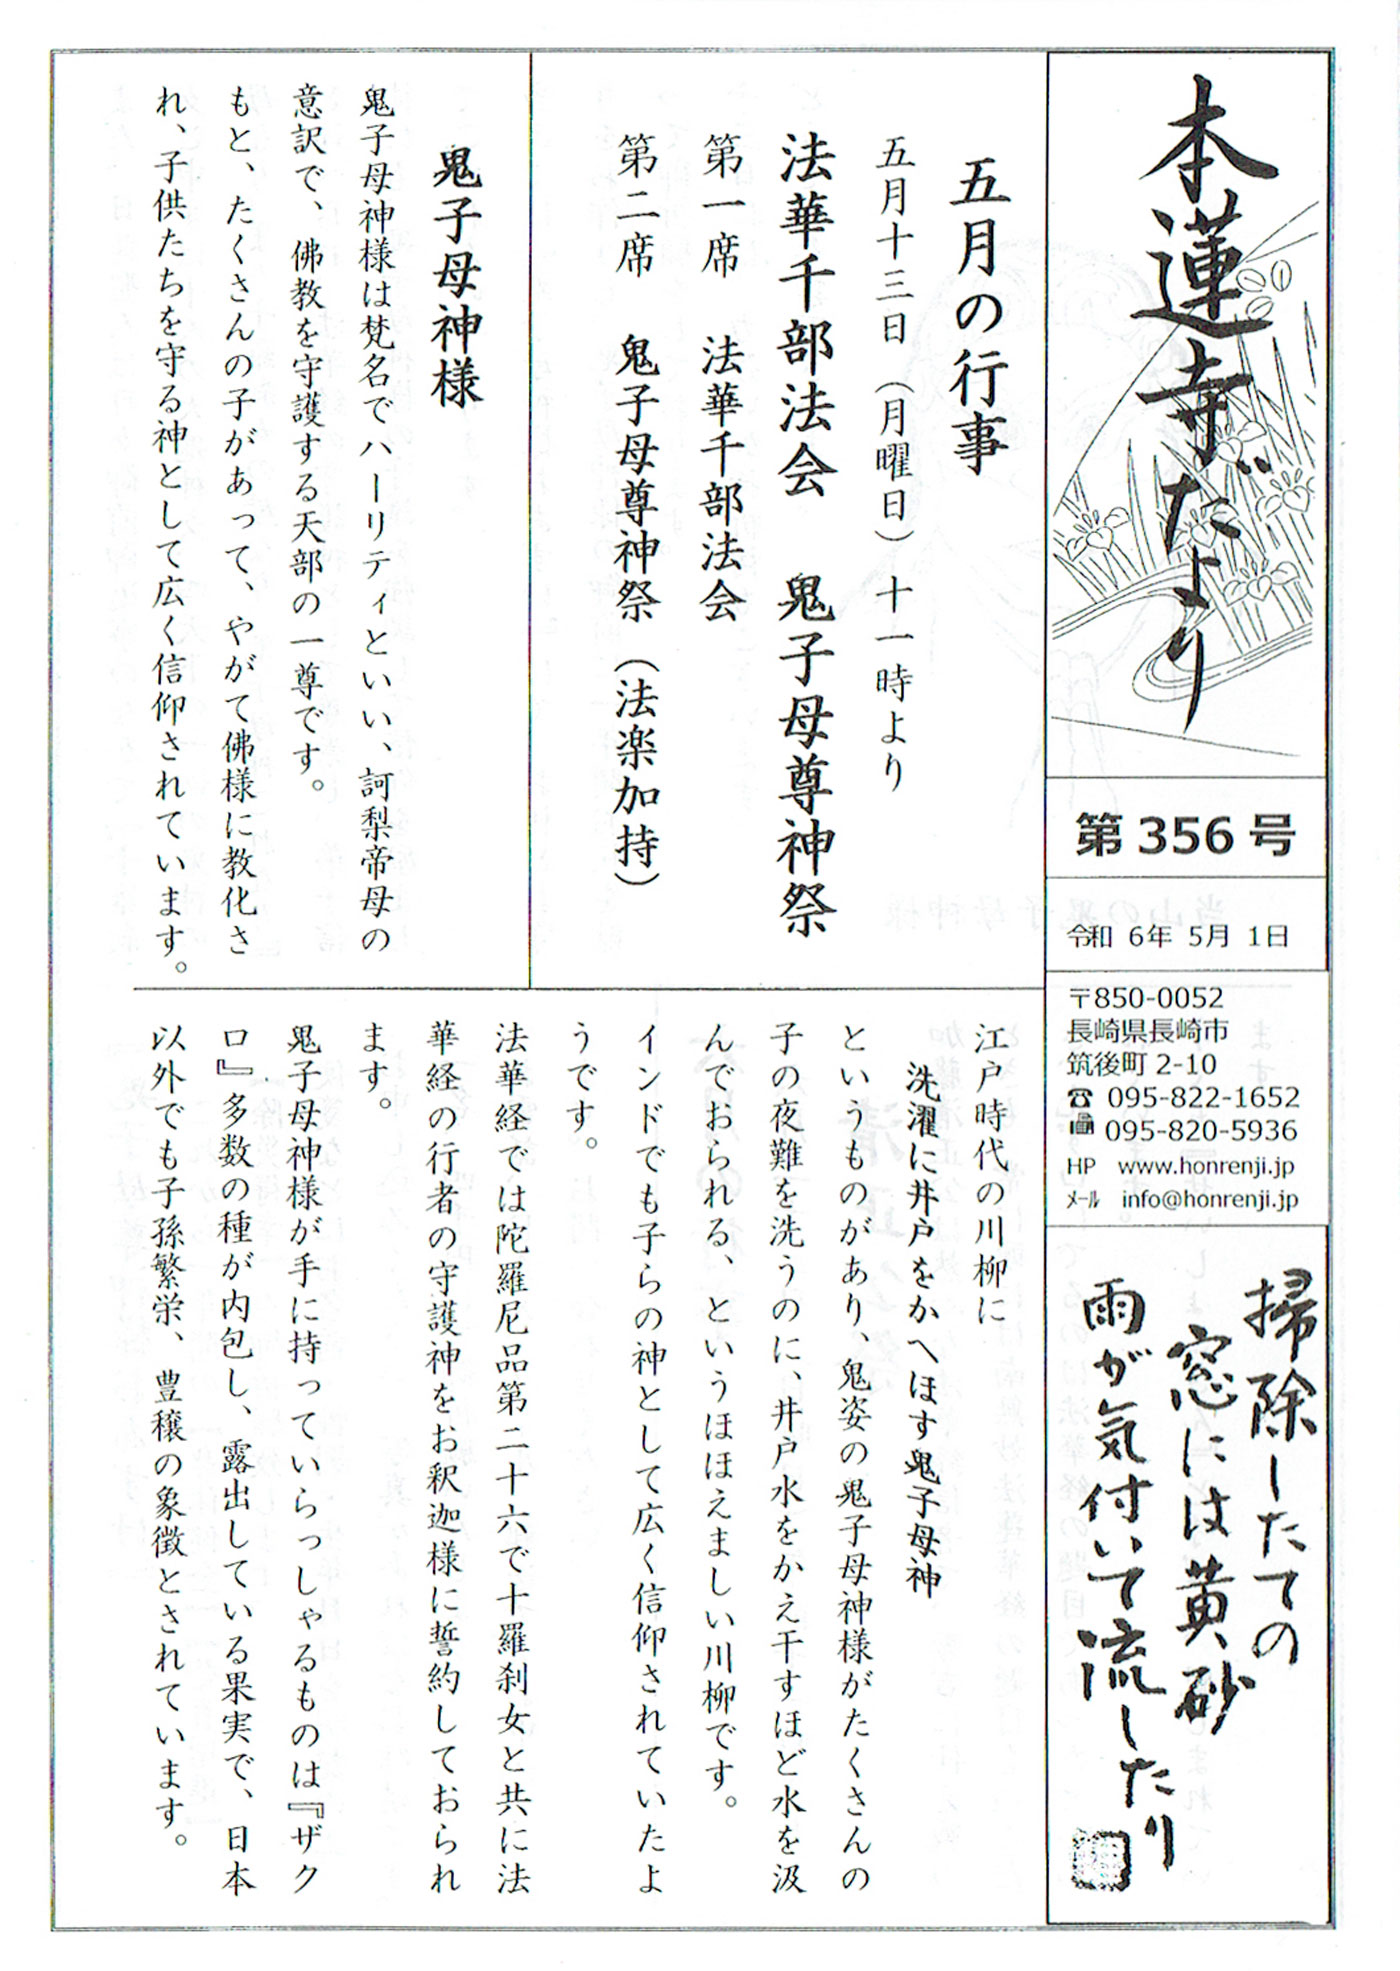 本蓮寺だより
第356号
令和 6年 5月 1日
〒850-0052
長崎県長崎市
筑後町 2-10
☎ 095-822-1652
095-820-5936
HP www.honrenji.jp
ﾒｰﾙ info@honrenji.jp
掃除したての
窓には黄砂
雨が気付いて流したり
五月の行事
五月十三日（月曜日）十一時より
法華千部法会 鬼子母尊神祭
第一席 法華千部法会
第二席 鬼子母尊神祭（法楽加持）
鬼子母神様
鬼子母神様は梵名でハーリティといい、訶梨帝母の
意訳で、佛教を守護する天部の一尊です。
もと、たくさんの子があって、やがて佛様に教化さ
れ、子供たちを守る神として広く信仰されています。
江戸時代の川柳に
洗濯に井戸をかへほす鬼子母神
というものがあり、鬼姿の鬼子母神様がたくさんの
子の夜難を洗うのに、井戸水をかえ干すほど水を汲
んでおられる、というほほえましい川柳です。
インドでも子らの神として広く信仰されていたよ
うです。
法華経では陀羅尼品第二十六で十羅刹女と共に法
華経の行者の守護神をお釈迦様に誓約しておられ
ます。
鬼子母神様が手に持っていらっしゃるものは『ザク
ロ』多数の種が内包し、露出している果実で、日本
以外でも子孫繁栄、豊穣の象徴とされています。